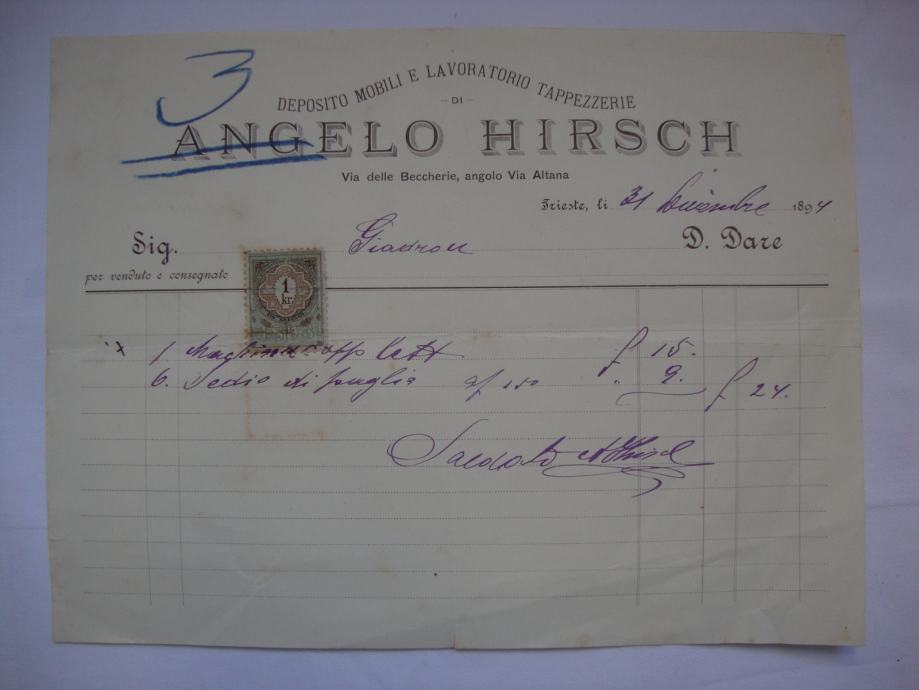 3
DEPOSITO MOBILI E LAVORATORIO TAPPEZZERIE
- DI -
ANGELO HIRSCH
Via delle Beccherie, angolo Via Altana
Trieste, li 31 Dicembre 1894
Sig. D. Dare
per venduto e consegnato
1 kr.
1 f 15.
6. Sedie di paglia af 150 " 9. f 24.
Saldato AHirsch